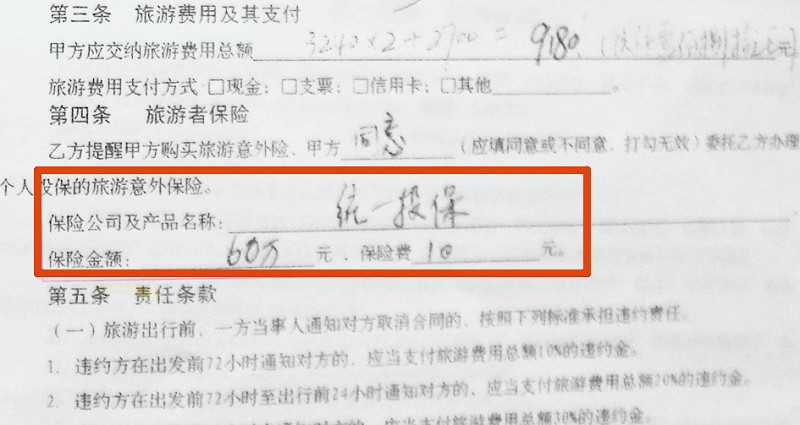 第三条 旅游费用及其支付
甲方应交纳旅游费用总额 3240×2+2700=9180 元)
旅游费用支付方式 □现金；□支票；□信用卡；□其他______。
第四条 旅游者保险
乙方提醒甲方购买旅游意外险，甲方 同意 （应填同意或不同意，打勾无效）委托乙方办理
个人投保的旅游意外保险。
保险公司及产品名称：统一投保
保险金额：60万 元，保险费 10 元。
第五条 责任条款
（一）旅游出行前，一方当事人通知对方取消合同的，按照下列标准承担违约责任。
1．违约方在出发前72小时通知对方的，应当支付旅游费用总额10%的违约金。
2．违约方在出发前72小时至出行前24小时通知对方的，应当支付旅游费用总额20%的违约金。
小时通知对方的，应当支付旅游费用总额30%的违约金。